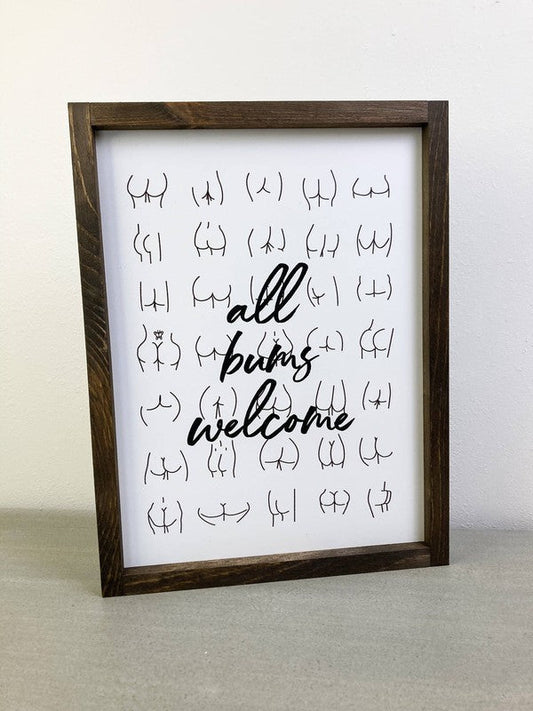 all
bums
welcome